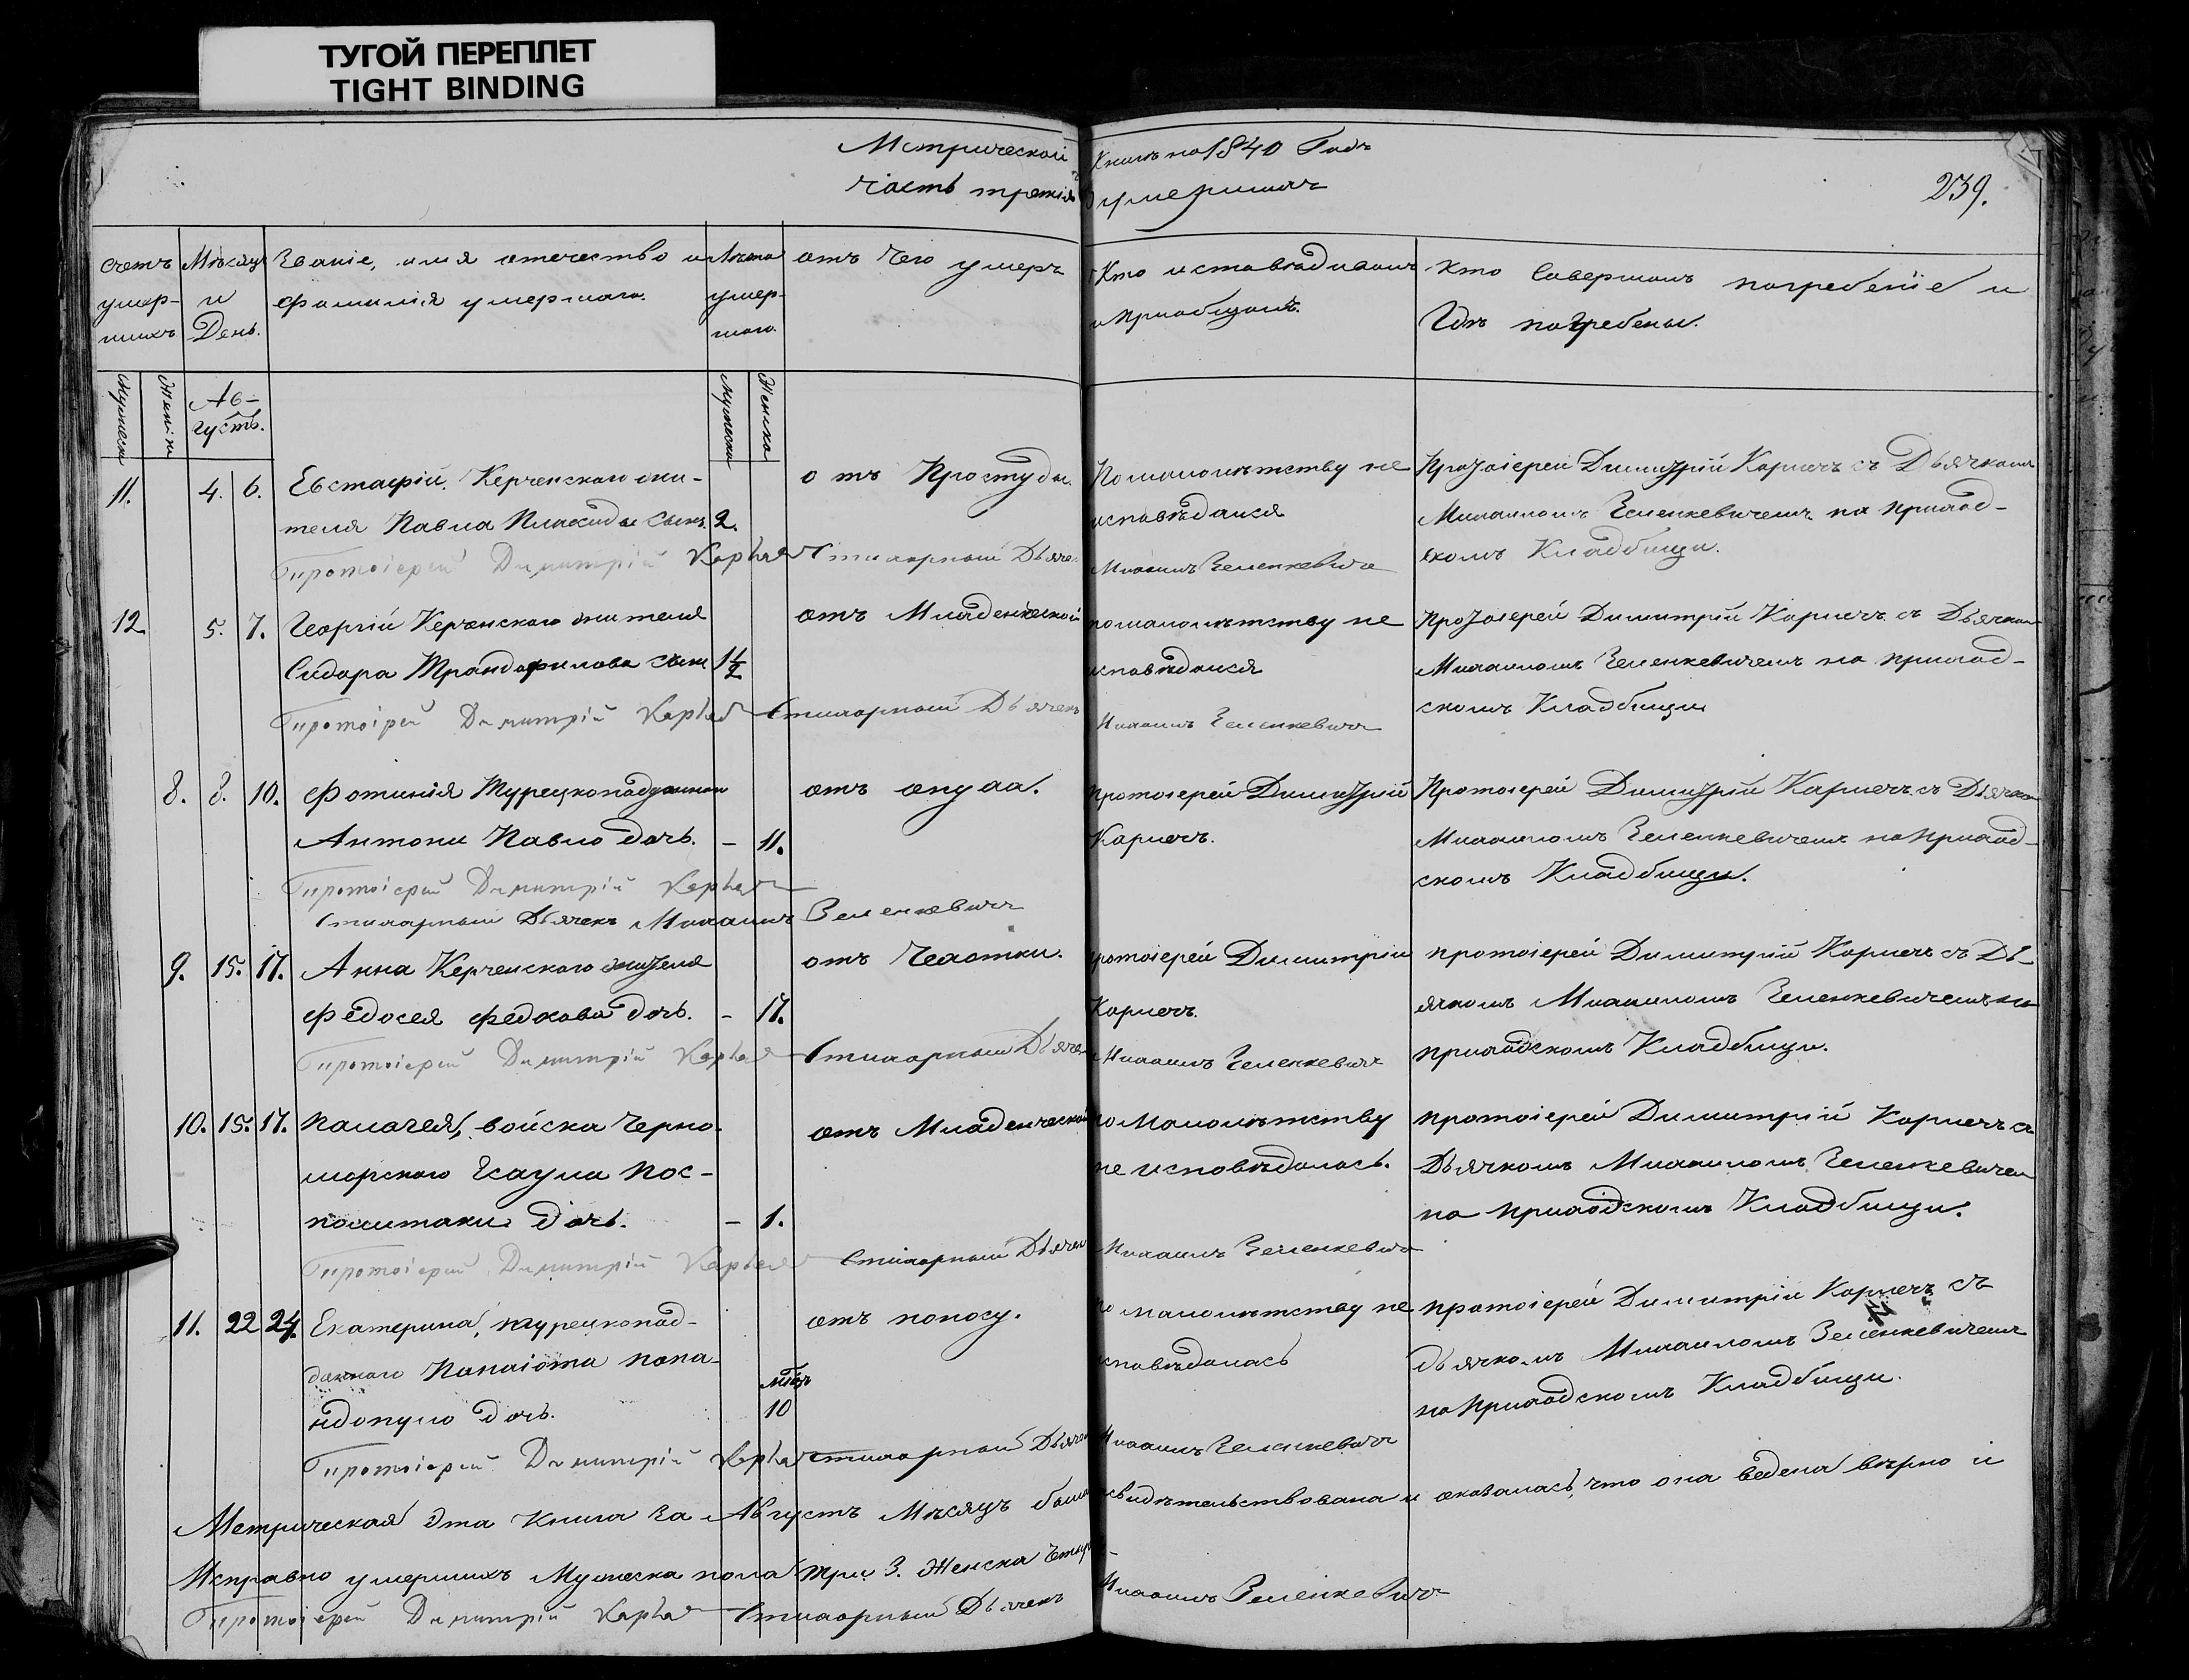 ТУГОЙ ПЕРЕПЛЕТ
TIGHT BINDING
Метрической Книги на 1840 Годъ
Часть третія О умершихъ
239.
Счетъ умер-шихъ
Мѣсяцъ и День.
Званіе, имя отечество и фамилія умершаго.
Лѣта умер-шаго.
отъ Чего умеръ
Кто исповѣдывалъ и пріобщалъ.
Кто Совершалъ погребеніе и Гдѣ погребены.
Мужеска
Женска
Ав-густъ.
Мужеска
Женска
11. 4. 6. Евстафій, Керченскаго жи-
теля Павла Плакиды Сынъ. 2.
отъ Простуды.
По малолѣтству не
исповѣдался
Протоіерей Димитрій Карпечъ съ Дьячкомъ
Михаиломъ Зеленкевичемъ на приход-
скомъ Кладбищи.
Протоіерей Димитрій Стихарный Дьячекъ Михаилъ Зеленкевичъ
12 5. 7. Георгій Керченскаго жителя
Сидора Трандафилова Сынъ 1½
отъ Младенческой
по малолѣтству не
исповѣдался
Протоіерей Димитрій Карпечъ съ Дьячкомъ
Михаиломъ Зеленкевичемъ на приход-
скомъ Кладбищи
Протоірей Димитрій Стихарный Дьячекъ Михаилъ Зеленкевичъ
8. 8. 10. Фотинія Турецкоподданнаго
Антони Павло дочь. - 11.
отъ опуха.
Протоіерей Димитрій
Карпечъ.
Протоіерей Димитрій Карпечъ съ Дьячкомъ
Михаиломъ Зеленкевичемъ на приход-
скомъ Кладбищи.
Протоіерей Димитрій
Стихарный Дьячекъ Михаилъ Зеленкевичъ
9. 15. 17. Анна Керченскаго жителя
Федосея Федкова дочь. - 17.
отъ Чехотки.
протоіерей Димитрій
Карпечъ.
протоіерей Димитрій Карпечъ съ Дь-
ячкомъ Михаиломъ Зеленкевичемъ на
приходскомъ Кладбищи.
Протоіерей Димитрій Стихарный Дьячекъ Михаилъ Зеленкевичъ
10. 15. 17. Палагея, войска Черно-
морскаго Есаула Пос-
политаки дочь. - 1.
отъ Младенческой
по Малолѣтству
не исповѣдалась.
протоіерей Димитрій Карпечъ съ
Дьячкомъ Михаиломъ Зеленкевичемъ
на приходскомъ Кладбищи.
Протоіерей Димитрій Стихарный Дьячекъ Михаилъ Зеленкевичъ
11. 22 24. Екатерина, турецкопод-
даннаго Панаіота папа-
ндопуло дочь. мѣс. 10
отъ поносу.
по малолѣтству не
исповѣдалась
протоіерей Димитрій Карпечъ съ
дьячкомъ Михаиломъ Зеленкевичемъ
на приходскомъ Кладбищи.
Протоіерей Димитрій Стихарный Дьячекъ Михаилъ Зеленкевичъ
Метрическая Эта Книга За Августъ Мѣсяцъ была освидѣтельствована и оказалась, что она ведена вѣрно и
Исправно умершихъ Мужеска пола три 3. Женска Четыре
Протоіерей Димитрій Стихарный Дьячекъ Михаилъ Зеленкевичъ